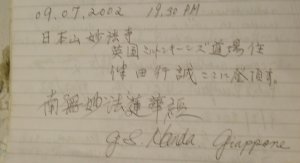 09.07.2002 19.30 PM
日本山妙法寺
英国ミルトンキーンズ道場住
伴田行誠ここに登頂す。
南無妙法蓮華経
G.S. Handa Giappone